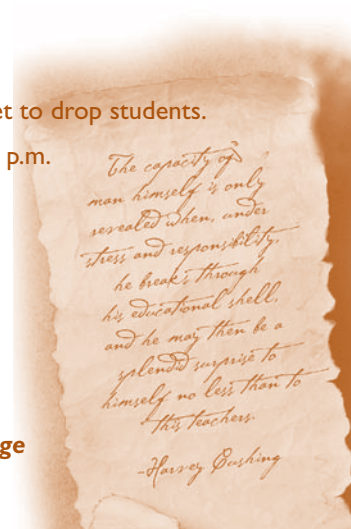 et to drop students.
p.m.
The capacity of
man himself is only
revealed when, under
stress and responsibility,
he breaks through
his educational shell,
and he may then be a
splendid surprise to
himself no less than to
this teachers.
-Harvey Cushing
ge